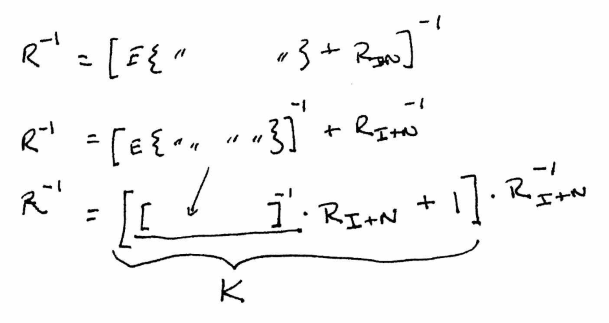 R^{-1} = [E{ " " } + R_{IN}]^{-1}
R^{-1} = [E{ " " " " }]^{-1} + R_{I+N}^{-1}
R^{-1} = [[ ]^{-1} · R_{I+N} + 1] · R_{I+N}^{-1}
K